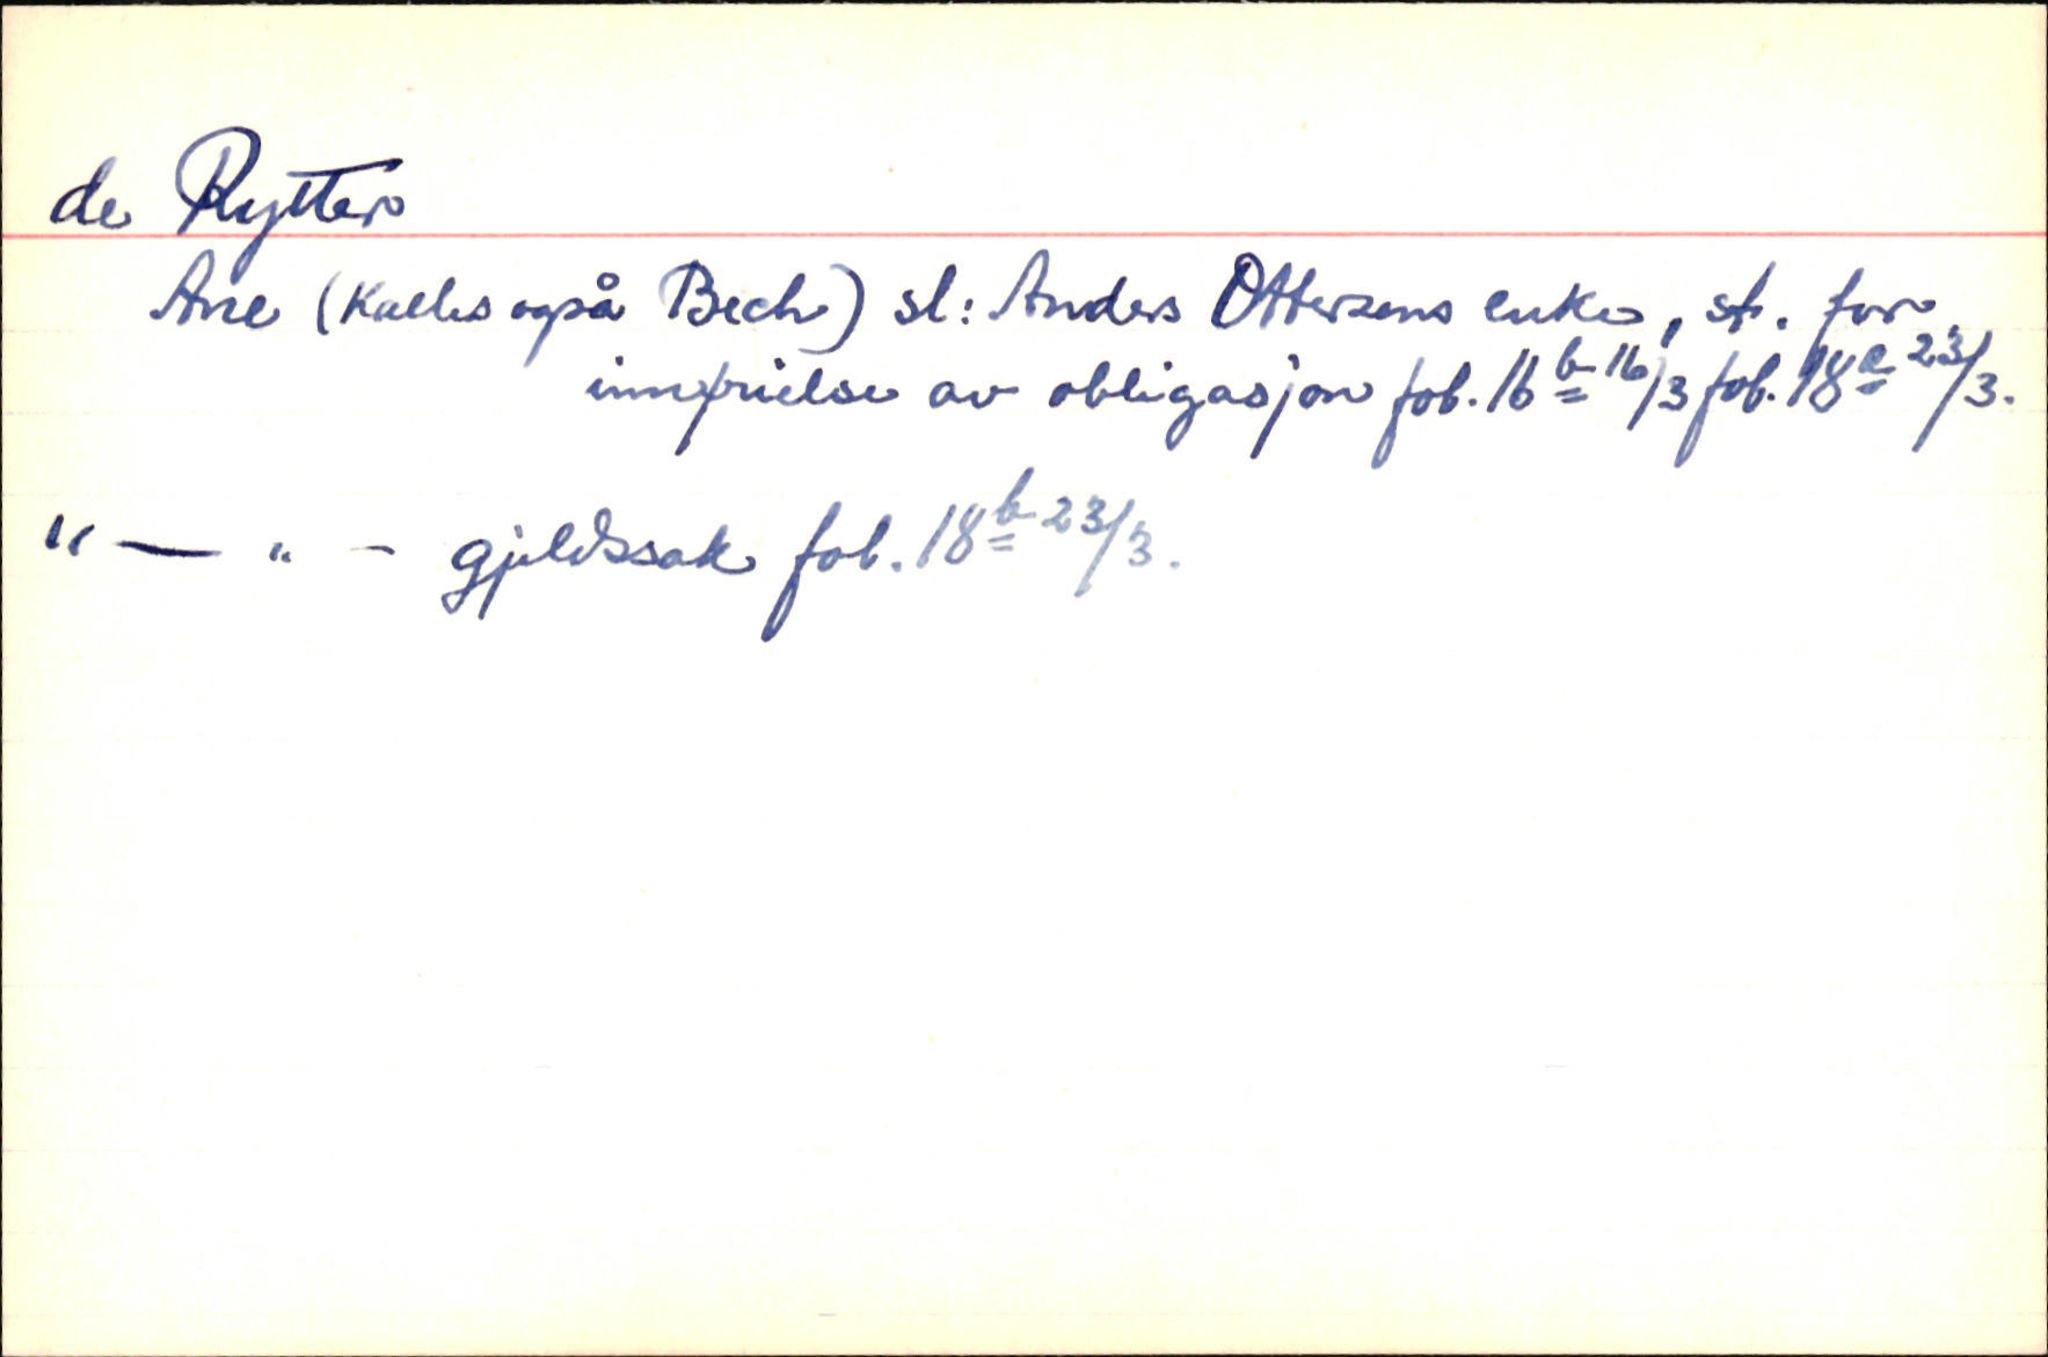 de Rytter
Ane (kalles også Bech) sl: Anders Ottersens enke, st. for
innfrielse av obligasjon fol. 16b 16/3 fol. 18a 23/3.
" — " – gjeldssak fol. 18b 23/3.